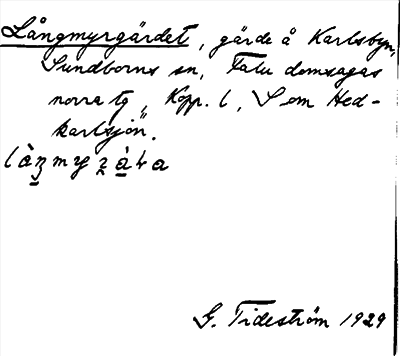 Långmyrgärdet, gärde å Karlsbyn,
Sundborns sn, Falu domsagas
norra tg, Kopp. l, S om Hed-
karlsjön.
G. Tideström 1929